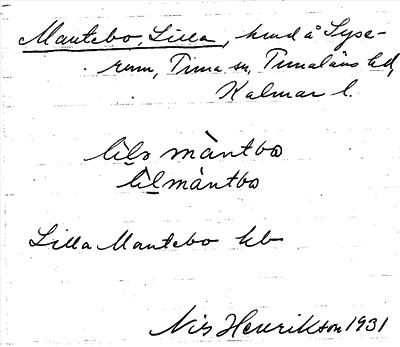 Mantebo, Lilla, hmd å Lyse-
rum, Tirna sn, Tunaläns hd,
Kalmar l.
lìlo màntbo
lìlmàntbo
Lilla Mantebo kb
Nils Henrikson 1931